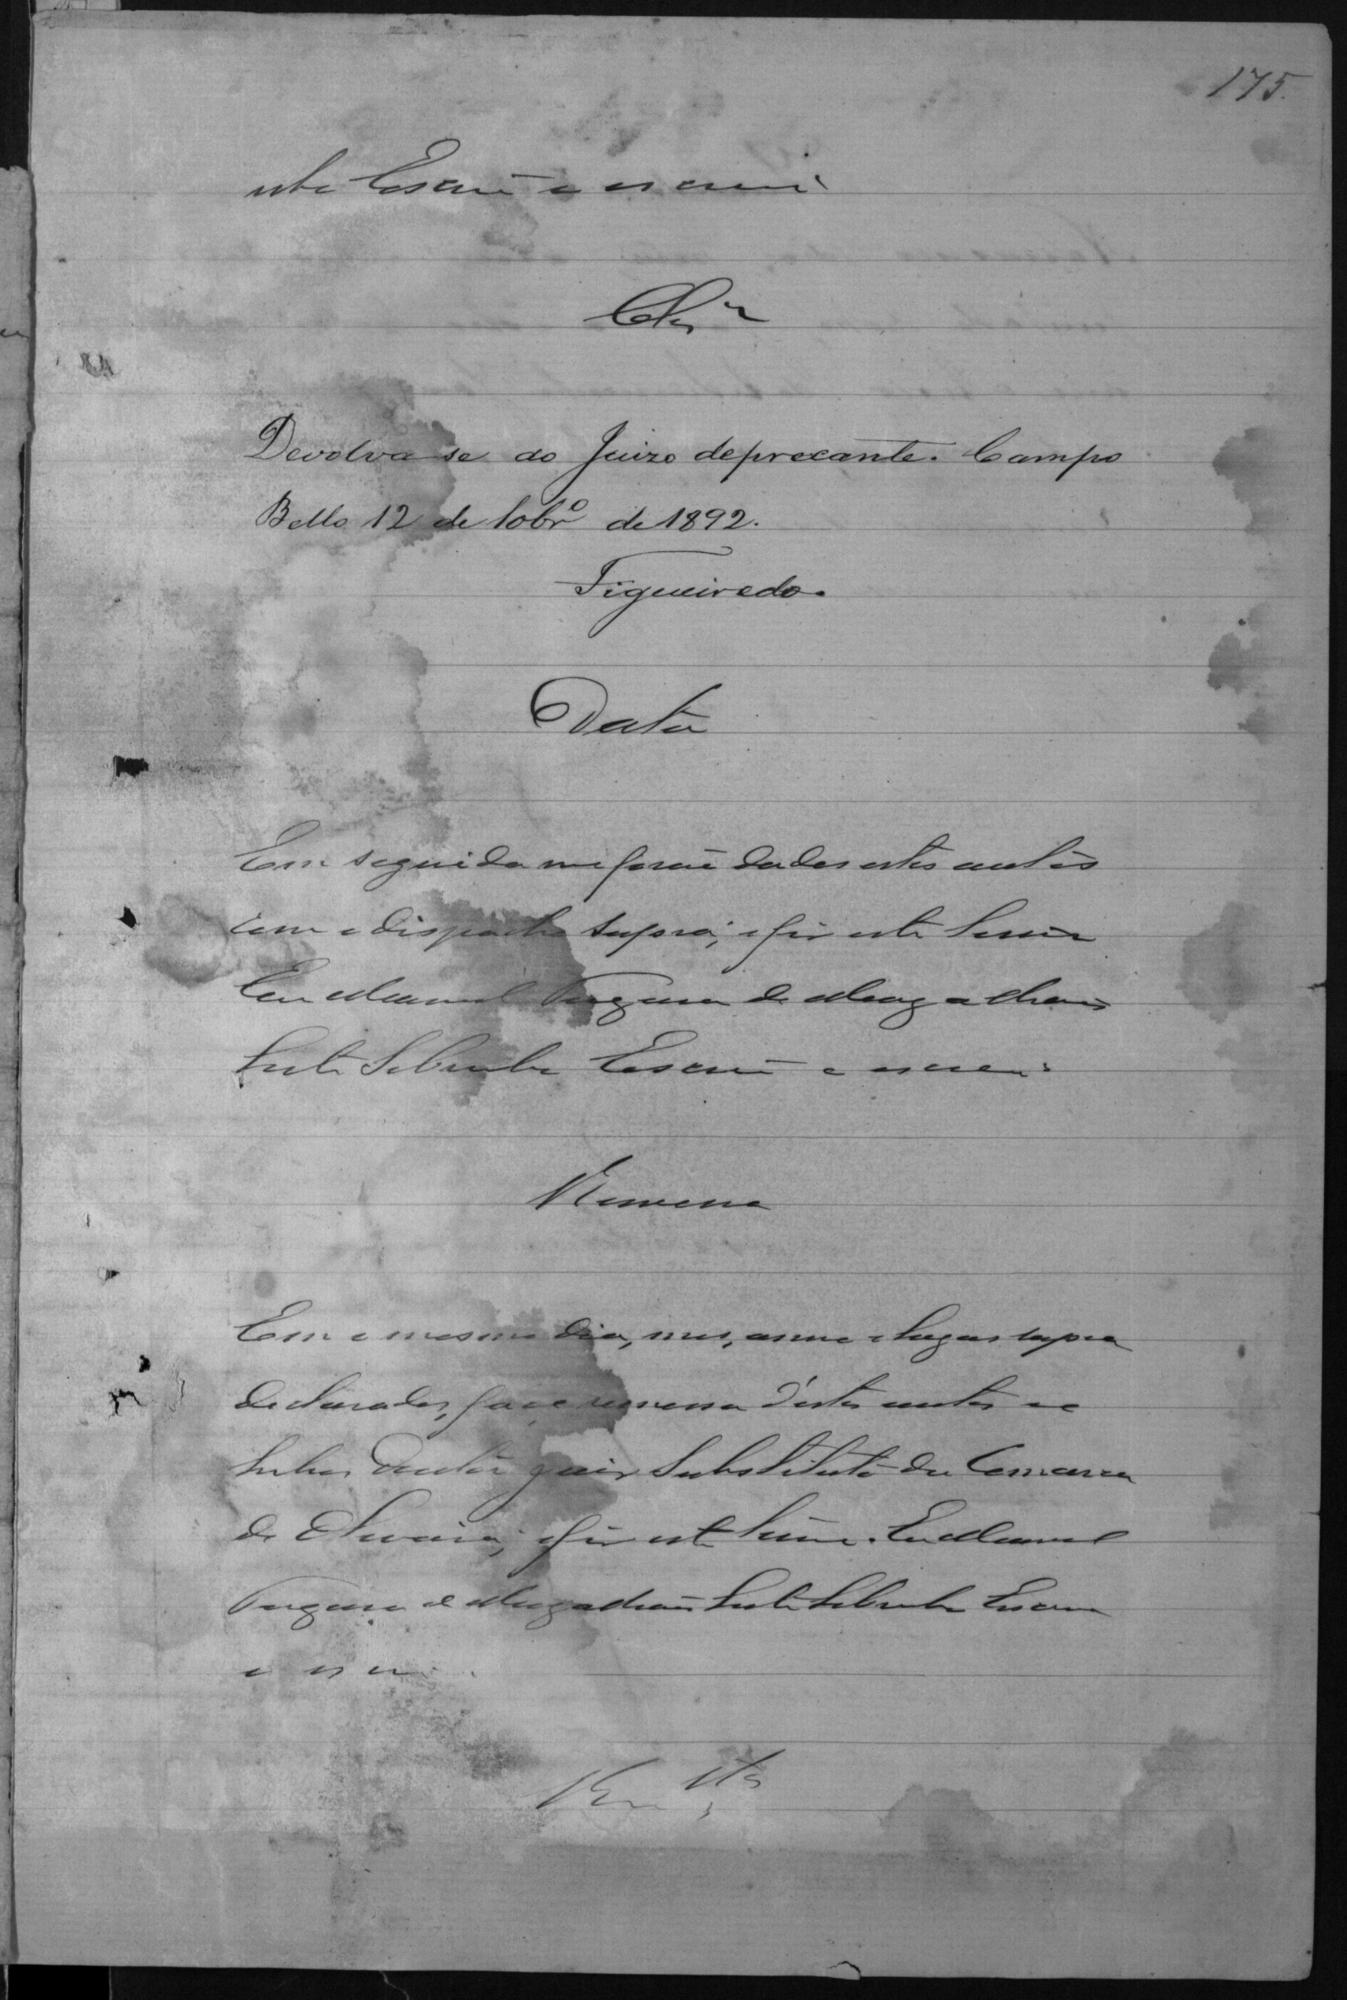 175.
Escrm o escrevi
Clsm
Devolva-se ao Juizo deprecante. Campo
Bello 12 de 10brº de 1892.
Figueiredo.
Data
Em seguida me forão dados estes autos
com o dispacho supra; e fiz este termo
Eu Manoel de Magalhães
Escrm o escrevi
Remessa
Em o mesmo dia, mes, anno e lugar supra
declarados, faço remessa d'estes autos ao
Doutor Juiz Substituto da Comarca
de Oliveira; e fiz este termo. Eu Manoel
de Magalhães Escrm
o escrevi